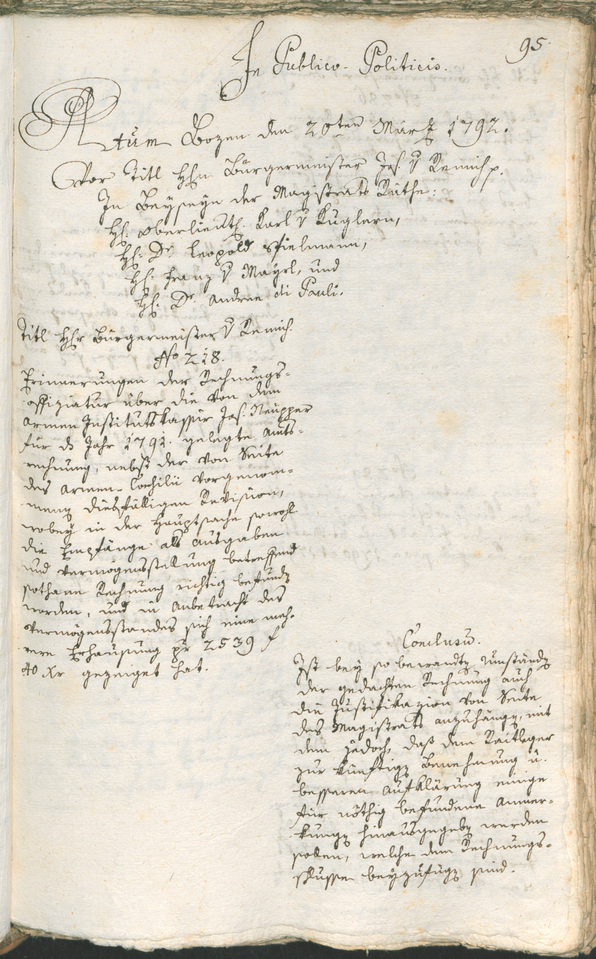 95.
In Publico-Politicis.
Actum Bozen den 20ten März 1792.
Vor Titl Hhn Bürgermeister Jos. v Remich p.
In Beyseyn der Magistrats Räthe:
Hh. Oberlieuth. Karl v Kuglern,
Hh. Dr. Leopold Spielmann,
Hh. Franz v Mayrl, und
Hh. Dr. Andree di Pauli.
Titl Hhr Bürgermeister v Remich
No 218.
Erinnerungen der Rechnungs-
offiziatur über die von dem
Armen Institutskassir Jos.
für ds Jahr 1791. gelegte Amts-
rechnung, nebst der von Seite
des Armen-Consilii vorgenom-
menen diesfälligen Revision,
wobey in der Hauptsache sowohl
die Empfänge als Ausgaben
und Vermögensstellung betreffend
sothane Rechnung richtig befunden
worden, und in Anbetracht des
Vermögensstandes sich eine meh-
rere Erhausung pr 2539 f
40 Xr gezeiget hat.
Conclusum.
Ist bey so bewandten Umständen
der gedachten Rechnung auch
die Justifikazion von Seite
des Magistrats anzuhängen, mit
dem jedoch, daß dem Raitleger
zur künftigen Benehmung u.
besseren Aufklärung einige
für nöthig befundene Anmer-
kungen hinausgegeben werden
sollen, welche dem Rechnungs-
schlusse beyzufügen sind.